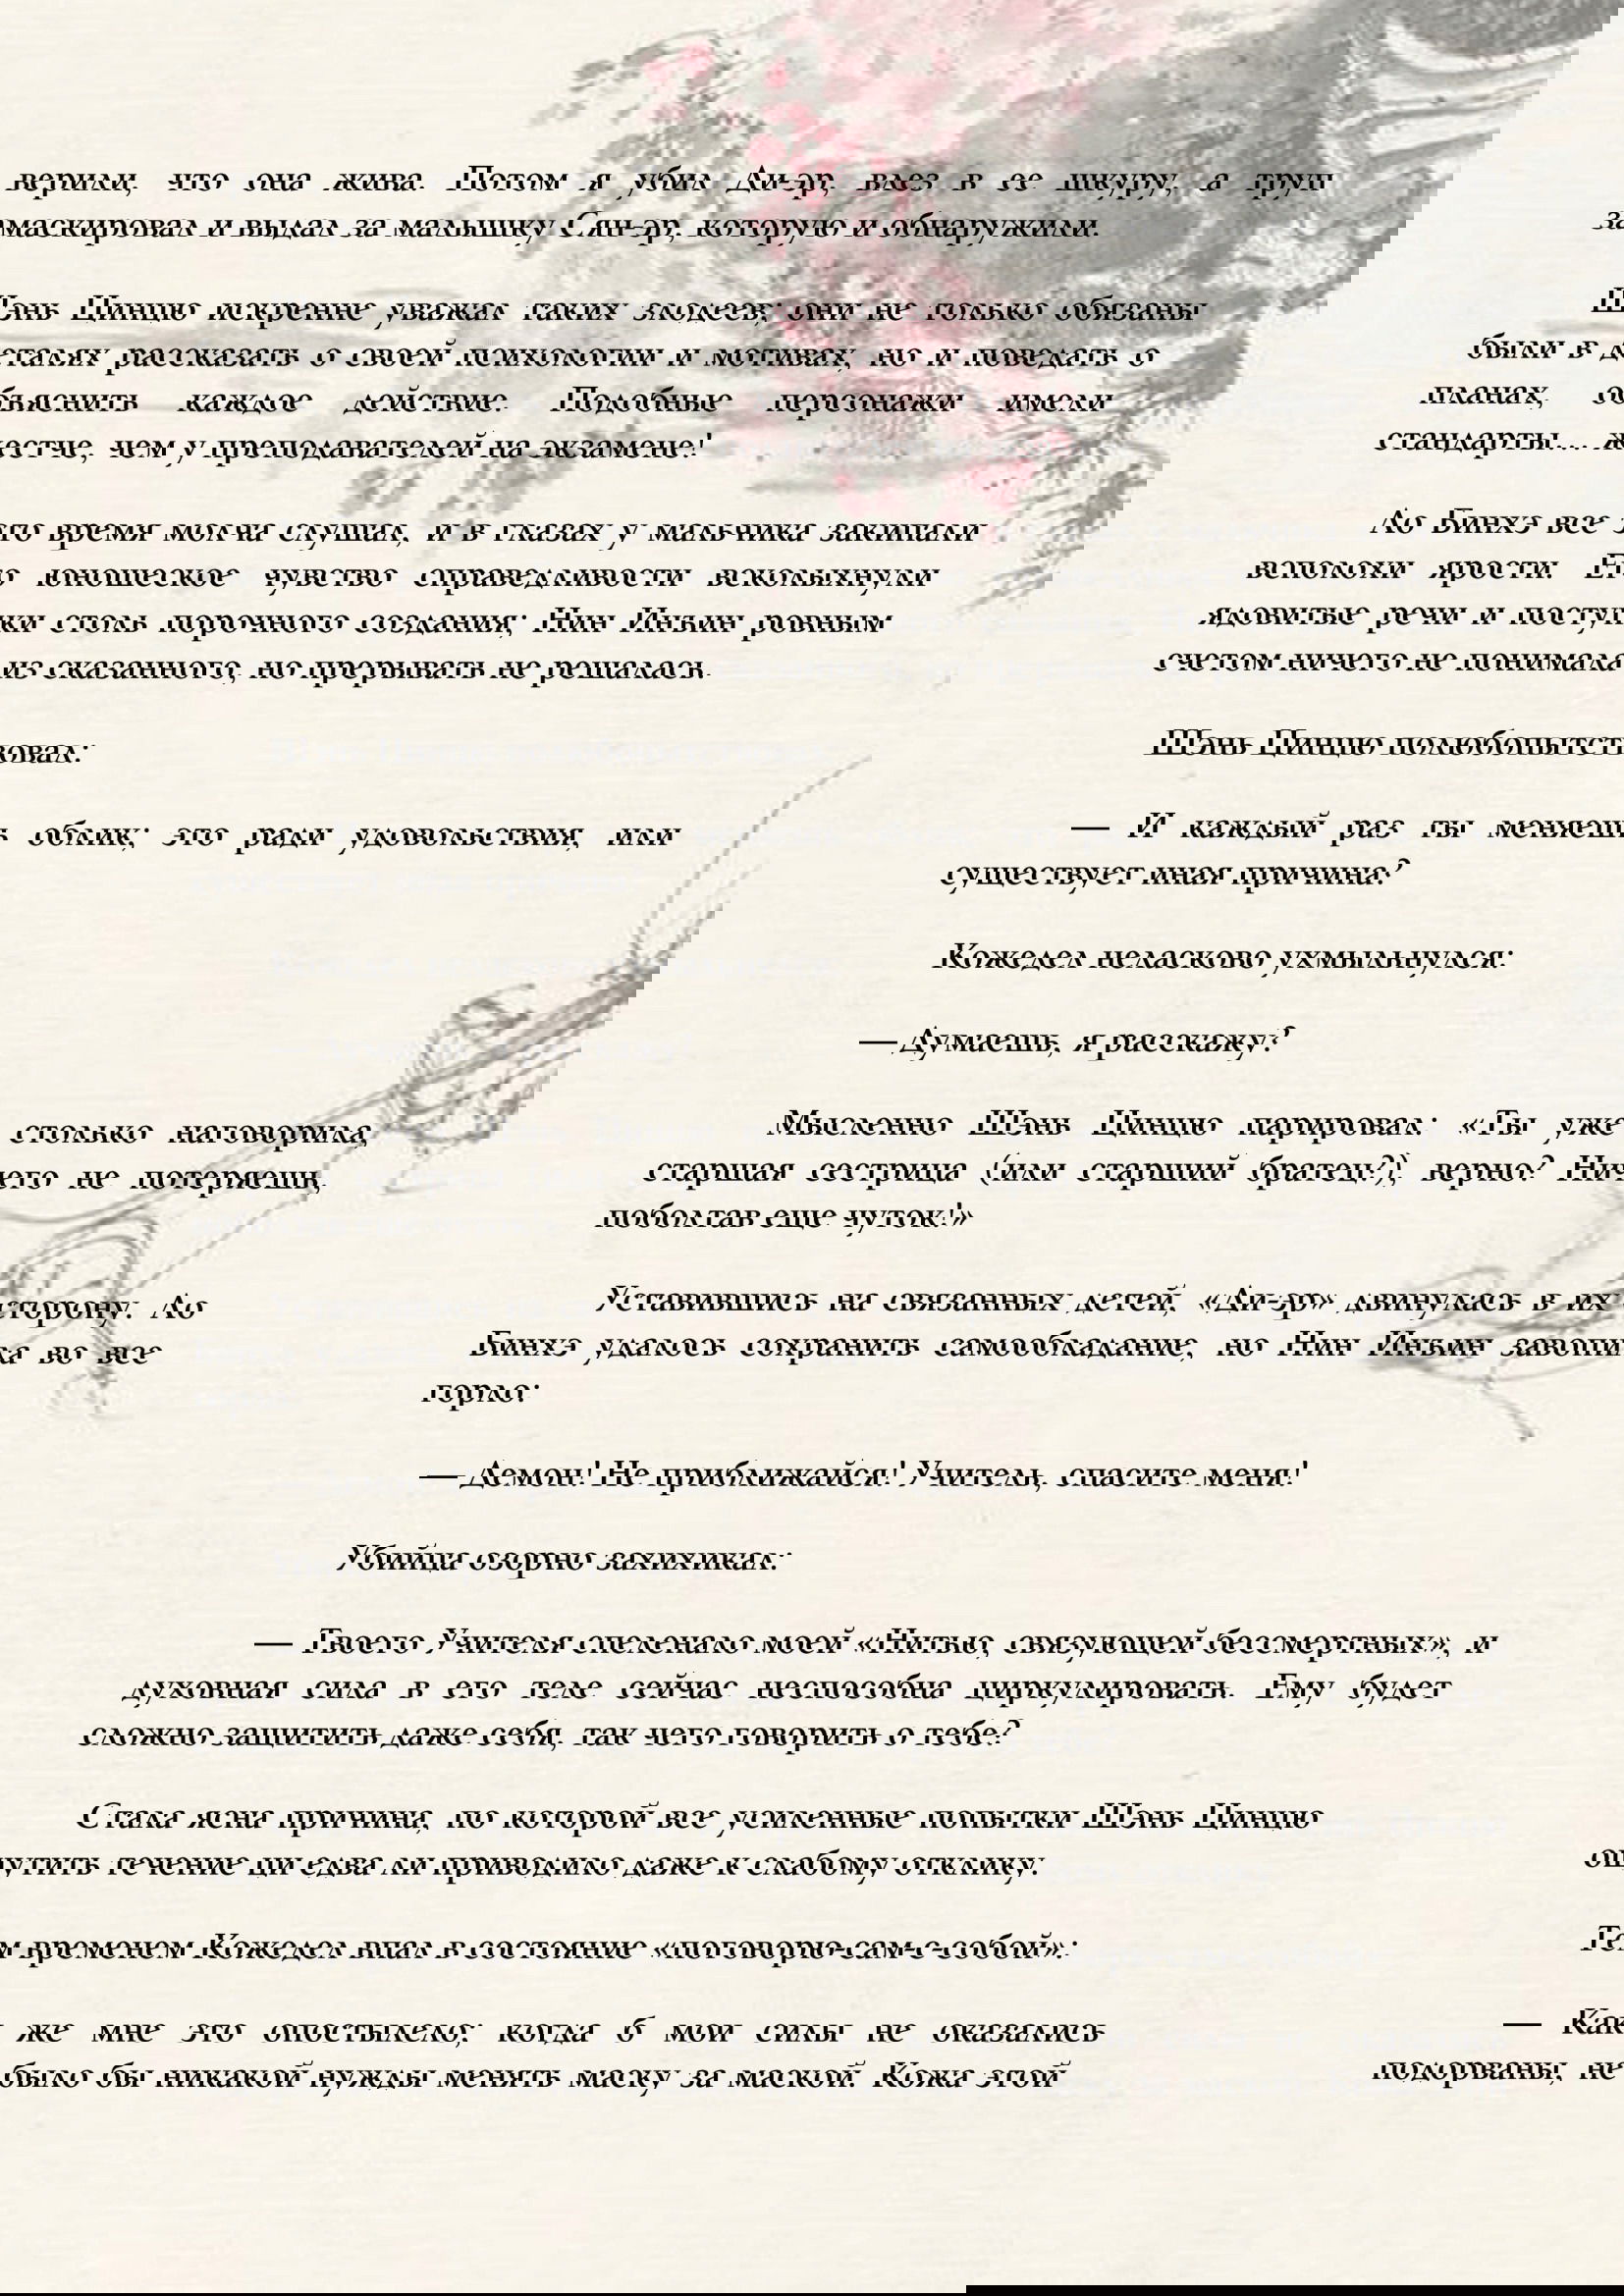 верили, что она жива. Потом я убил Ди-эр, влез в ее шкуру, а труп
замаскировал и выдал за малышку Сян-эр, которую и обнаружили.
Шэнь Цинцю искренне уважал таких злодеев: они не только обязаны
были в деталях рассказать о своей психологии и мотивах, но и поведать о
планах, объяснить каждое действие. Подобные персонажи имели
стандарты... жестче, чем у преподавателей на экзамене!
Ло Бинхэ все это время молча слушал, и в глазах у мальчика закипали
всполохи ярости. Его юношеское чувство справедливости всколыхнули
ядовитые речи и поступки столь порочного создания; Нин Инъин ровным
счетом ничего не понимала из сказанного, но прерывать не решалась.
Шэнь Цинцю полюбопытствовал:
— И каждый раз ты меняешь облик; это ради удовольствия, или
существует иная причина?
Кожедел неласково ухмыльнулся:
— Думаешь, я расскажу?
Мысленно Шэнь Цинцю парировал: «Ты уже столько наговорила,
старшая сестрица (или старший братец?), верно? Ничего не потеряешь,
поболтав еще чуток!»
Уставившись на связанных детей, «Ди-эр» двинулась в их сторону. Ло
Бинхэ удалось сохранить самообладание, но Нин Инъин завопила во все
горло:
— Демон! Не приближайся! Учитель, спасите меня!
Убийца озорно захихикал:
— Твоего Учителя спеленало моей «Нитью, связующей бессмертных», и
духовная сила в его теле сейчас неспособна циркулировать. Ему будет
сложно защитить даже себя, так чего говорить о тебе?
Стала ясна причина, по которой все усиленные попытки Шэнь Цинцю
ощутить течение ци едва ли приводило даже к слабому отклику.
Тем временем Кожедел впал в состояние «поговорю-сам-с-собой»:
— Как же мне это опостылело; когда б мои силы не оказались
подорваны, не было бы никакой нужды менять маску за маской. Кожа этой